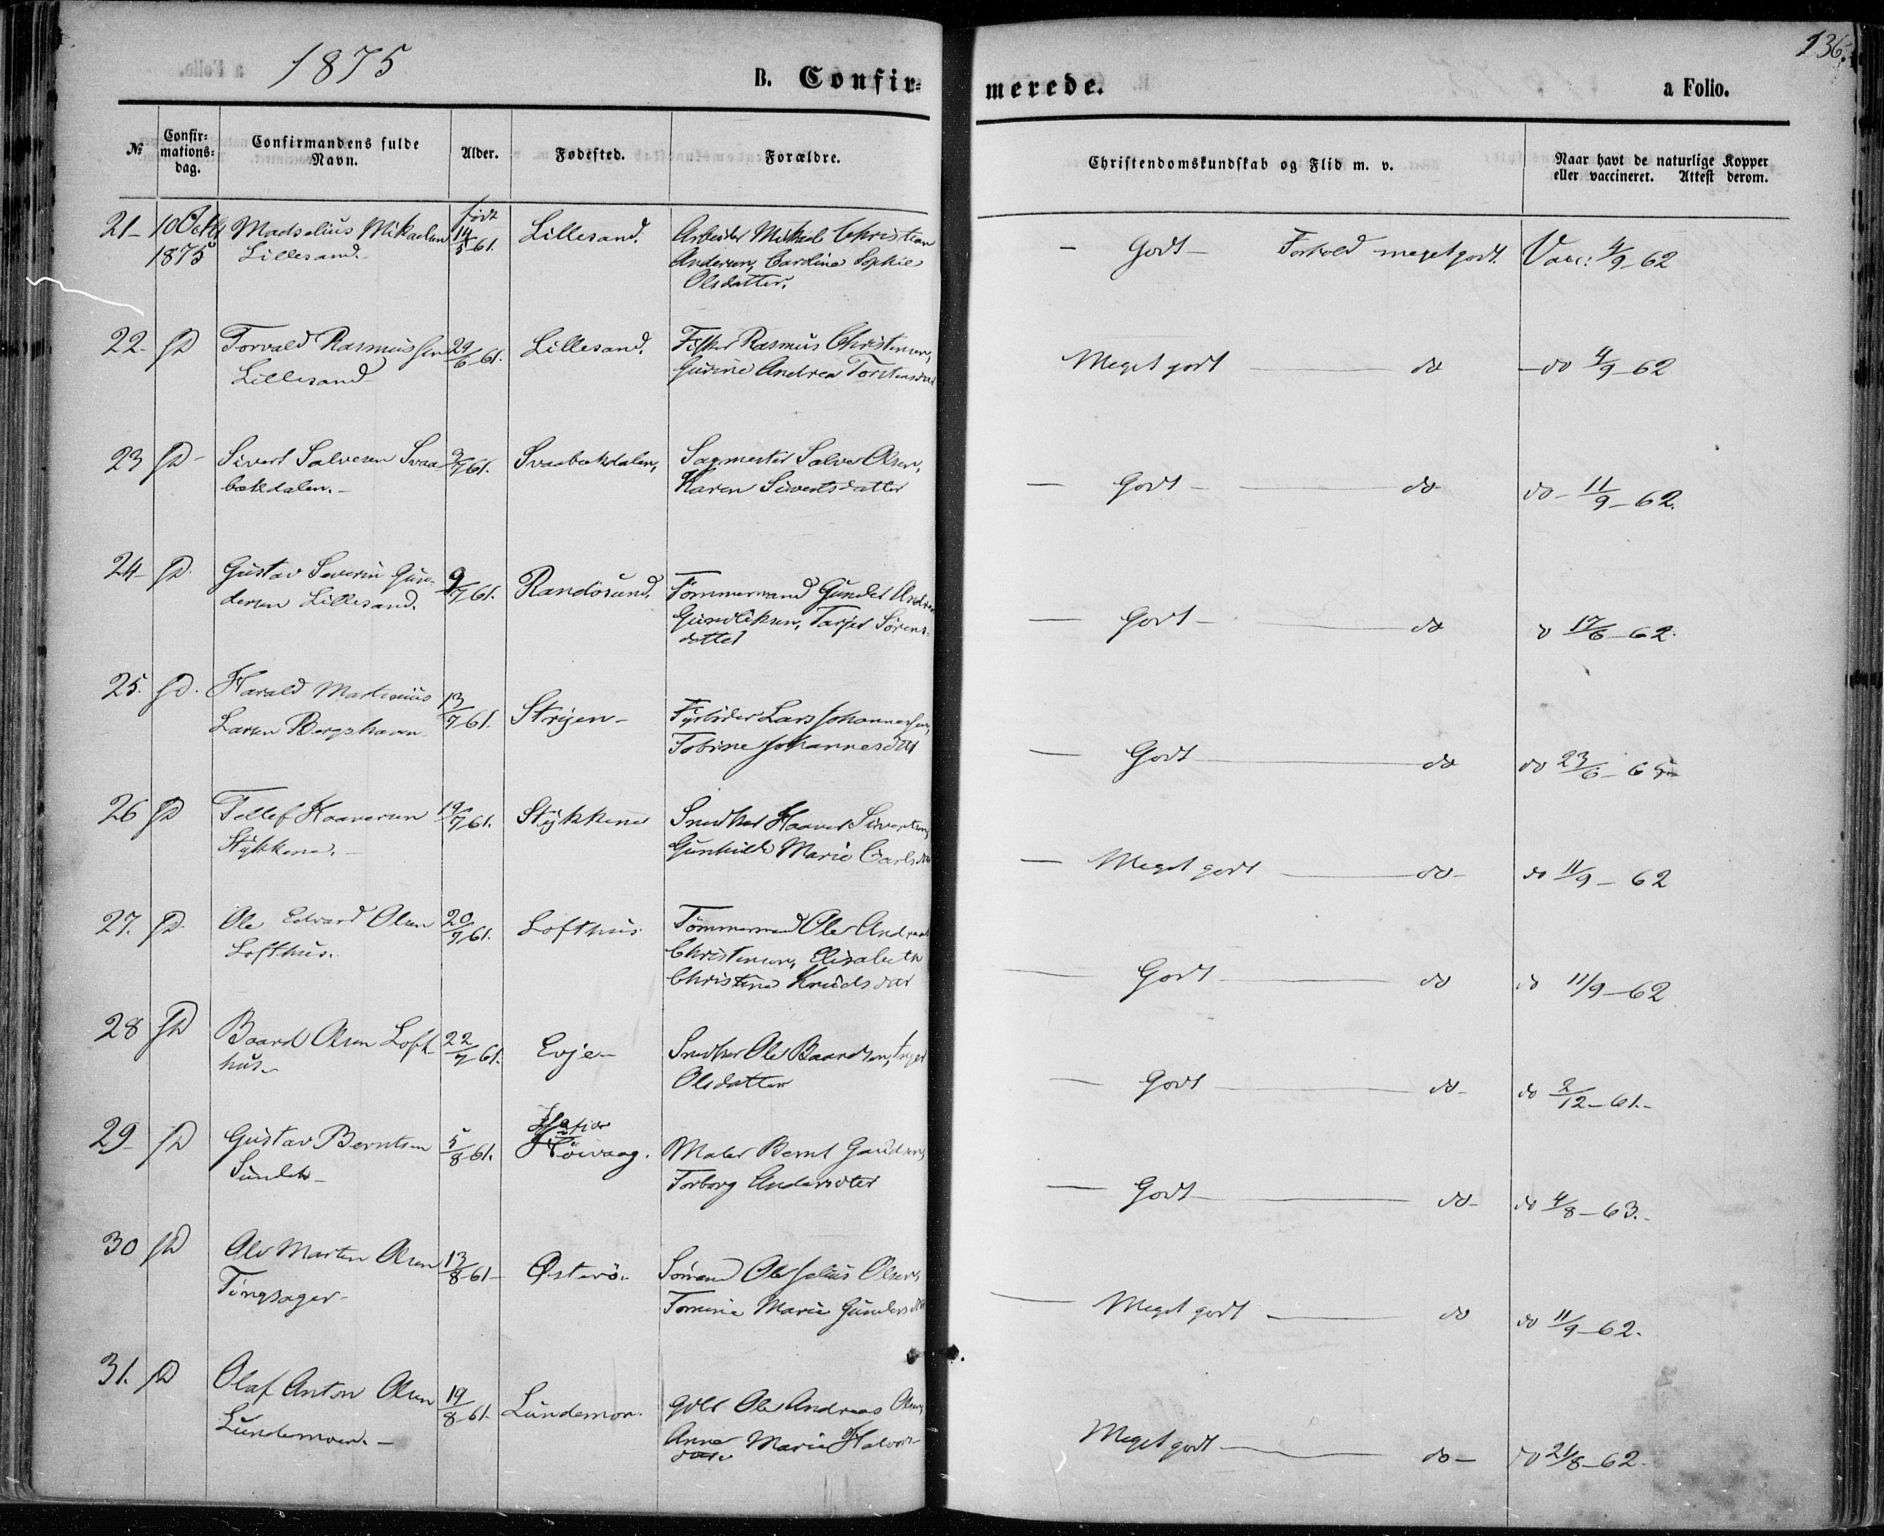 1875
136.
B. Confir=
merede.
a Folio.
№
Confir=
mations=
dag.
Confirmandens fulde
Navn.
Alder.
Fødested.
Forældre.
Christendomskundskab og Flid m. v.
Naar havt de naturlige Kopper
eller vaccineret. Attest derom.
21- 10 Octb Madselius Mikaelsen født 14/5 61. Lillesand. Arbeider Mikal Christian
1875 Lillesand. Andersen, Caroline Sophie
Olsdatter.
- Godt - Forhold meget godt. Vacc: 4/9-62
22- D Torvald Rasmussen 29/6 61. Lillesand. Fisker Rasmus Christensen,
Lillesand Gurine Andrea Torstensdat
Meget godt do -do 4/9-62
23 D- Sivert Salvesen Svaa- 3/7 61. Svaabækdalen, Sagmester Salve Olsen,
bækdalen.- Karen Sivertsdatter
- Godt - do do- 11/9-62.
24- D. Gustav Severin Gun- 9/7 61. Randøsund. Tømmermand Gundel Andr
dersen Lillesand. Gundersen, Tarjer Sørens=
datter
- Godt - do do 17/6-62.
25. D. Harald Martinius 13/7 61. Strijen- Lars Johannessen,
Larsen Bergshavn Tobine Johannesdat
- Godt do do 23/6-65
26 D Tellef Haaversen 19/7 61. Stykkene Snedker Haaver Sivertsen,
Stykkene.- Gunhilde Marie Carlsdat
- Meget godt do- do 11/9-62
27. D. Ole Edvard Olsen 20/7 61. Lofthus. Tømmermand Ole Andreas
Lofthus. Christensen, Elisabeth
Christine Knudsdat
- Godt do do 11/9-62
28 D Baard Olsen Loft 22/7 61. Evje- Snedker Ole Baardsen, Inger
hus- Olsdatter
- Godt do- do 2/12-61.-
29- D Gustav Berntsen 5/8 61. Høivaag. Maler Bernt
Sundet- Torborg Andersdter
- Godt do- do 4/8-63.-
30 D Alv Martin Olsen 13/8 61- Østerø. Sømand Ole Julius Olsen,
Tingsager- Tomine Marie Gundersdat
- Meget godt do do 11/9-62.
31. D Olaf Anton Olsen 19/8 61- Lundemoen. Ole Andreas Olsen,
Lundemoen.- Anne Marie Halvors-
dat.
Meget godt do- do 21/8-62.